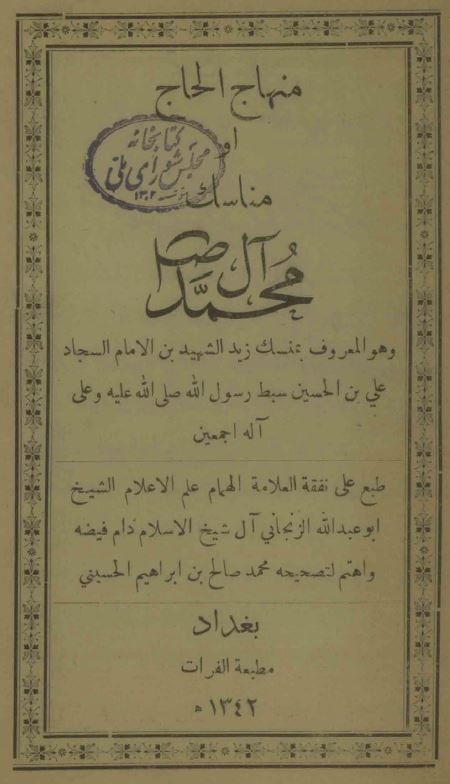 منهاج الحاج
او
مناسك
آل محمد ص
وهو المعروف بمنسك زيد الشهيد بن الامام السجاد
علي بن الحسين سبط رسول الله صلى الله عليه وعلى
آله اجمعين
طبع على نفقة العلامة الهمام علم الاعلام الشيخ
ابو عبدالله الزنجاني آل شيخ الاسلام دام فيضه
واهتم لتصحيحه محمد صالح بن ابراهيم الحسيني
بغداد
مطبعة الفرات
١٣٤٢ ه
كتابخانه
مجلس شوراى ملى